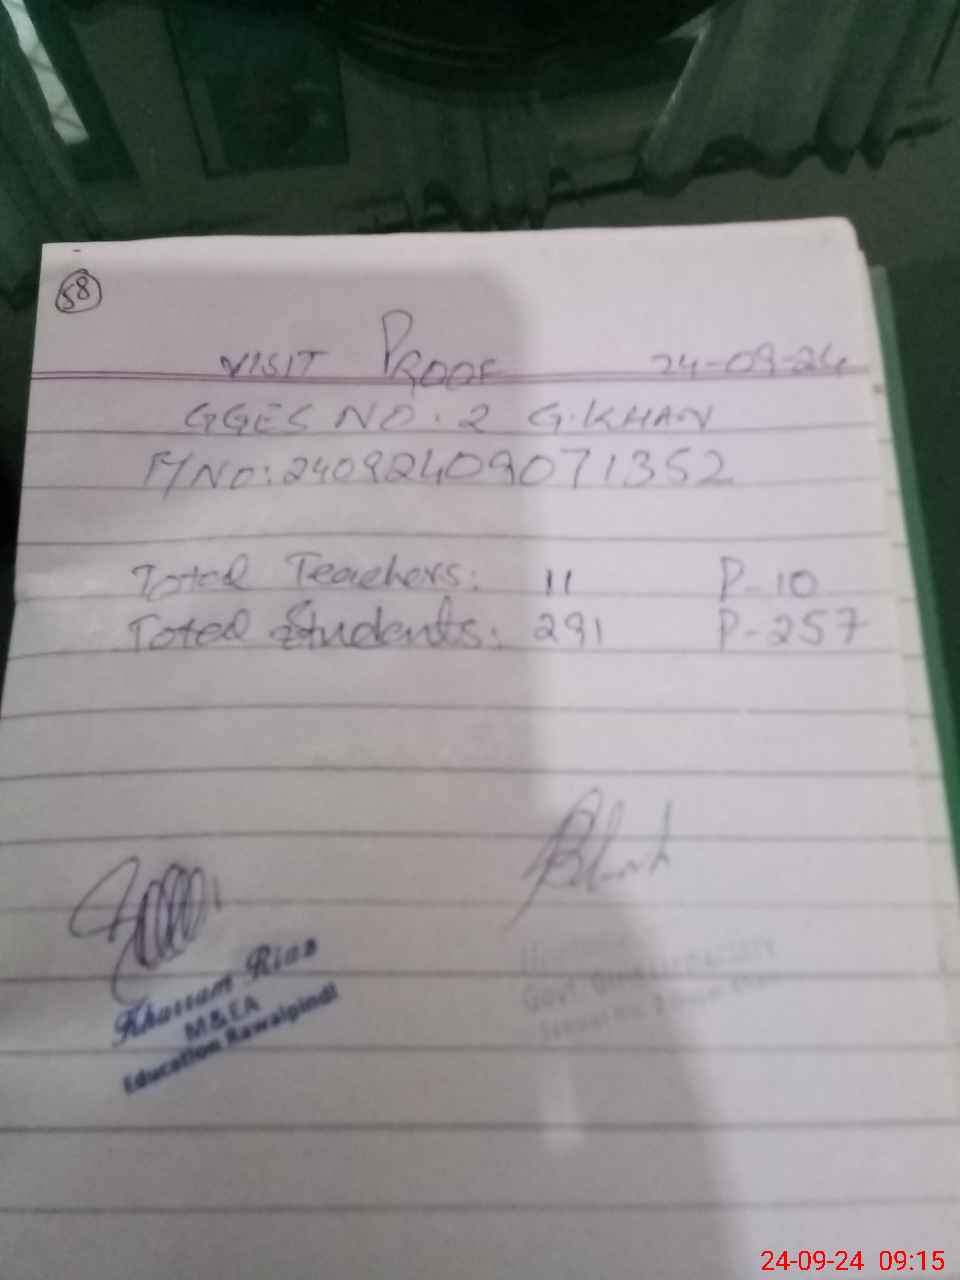 58
VISIT PROOF 24-09-24
GGES NO. 2 G.KHAN
F/NO: 24092409071352
Total Teachers: 11 P-10
Total Students: 291 P-257
Khurram Riaz
M&EA
Education Rawalpindi
Govt. Girls Elementary
School No. 2
24-09-24 09:15